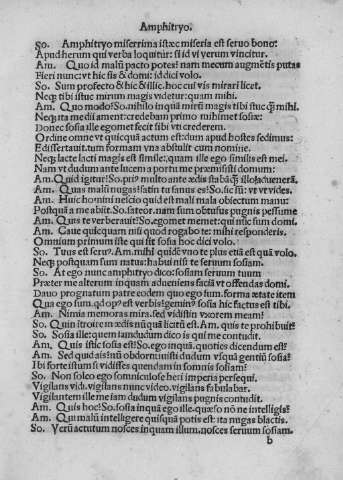 Amphitryo.
So. Amphitryo miserrima istæc miseria est seruo bono:
Apud herum qui verba loquitur: si id vi verum vincitur.
Am. Quo id malū pacto potest nam mecum augmētis putas
Fieri nunc: vt hic sis & domi: id dici volo.
So. Sum profecto & hic & illic. hoc cui vis mirari licet.
Neq; tibi istuc mirum magis videtur: quam mihi.
Am. Quo modo? So. nihilo inquā mirū magis tibi istuc q̄ mihi.
Neq; ita me dii ament: credebam primo mihimet sosiæ:
Donec sosia ille egomet fecit sibi vti crederem.
Ordine omne vt quicquā actum est: dum apud hostes sedimus:
Edissertauit. tum formam vna abstulit cum nomine.
Neq; lacte lacti magis est simile: quam ille ego similis est mei.
Nam vt dudum ante lucem a portu me præmisisti domum:
Am. Quid igitur? So. priꝰ multo ante ædis stabā q̄ illo aduenerā.
Am. Quas malū nugas? satin tu sanus es? So. sic sū: vt vides.
Am. Huic homini nescio quid est mali mala obiectum manu:
Postquā a me abiit. So. fateor. nam sum obtusus pugnis pessume
Am. Quis te verberauit? So. egomet memet: qui nūc sum domi.
Am. Caue quicquam nisi quod rogabo te: mihi responderis.
Omnium primum iste qui sit sosia hoc dici volo.
So. Tuus est seruꝰ. Am. mihi quidē vno te plus etiā est quā volo.
Neq; postquam sum natus: habui nisi te seruum sosiam.
So. At ego nunc amphitryo dico: sosiam seruum tuum
Præter me alterum inquam adueniens faciā vt offendas domi.
Dauo prognatum patre eodem quo ego sum. forma ætate item
Qua ego sum. qd opꝰ est verbis? geminꝰ sosia hic factus est tibi.
Am. Nimia memoras mira. sed vidistin vxorem meam?
So. Quin itroire in ædis nūquā licitū est. Am. quis te prohibuit?
So. Sosia ille: quem iamdudum dico is qui me contudit.
Am. Quis istic sosia est? So. ego inquā. quoties dicendum est?
Am. Sed quid ais? nū obdormiuisti dudum vsquā gentiū sosia?
Ibi forte istum si vidisses quendam in somnis sosiam?
So. Non soleo ego somniculose heri imperia persequi.
Vigilans vidi. vigilans nunc video. vigilans fabulabar.
Vigilantem ille me iam dudum vigilans pugnis contudit.
Am. Quis hoc? So. sosia inquā ego ille. quæso nō ne intelligis?
Am. Qui malū intelligere quisquā potis est: ita nugas blactis.
So. Verū actutum nosces inquam illum. nosces seruum sosiam.
b